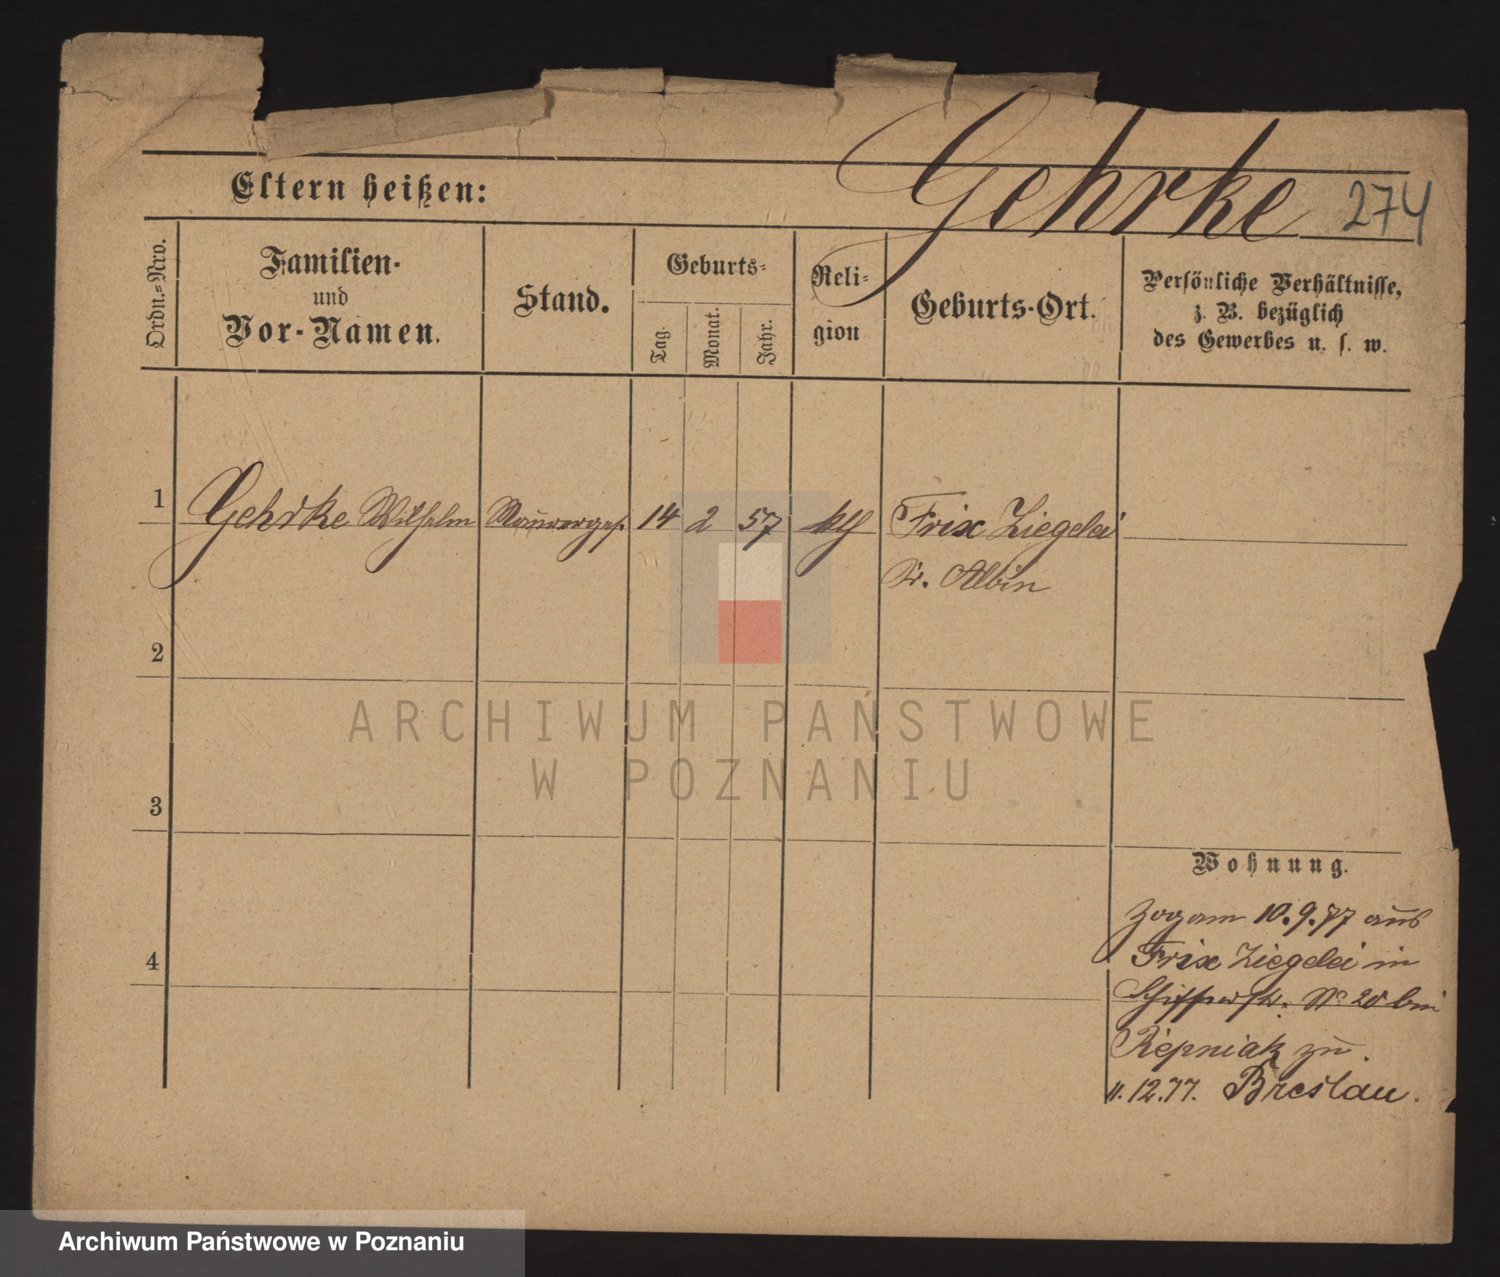 Gehrke 274
Eltern heißen:
Ordn.-Nro.
Familien-
und
Vor-Namen.
Stand.
Geburts-
Tag.
Monat.
Jahr.
Reli-
gion
Geburts-Ort.
Persönliche Verhältnisse,
z. B. bezüglich
des Gewerbes u. s. w.
1 Gehrke Wilhelm Maurerges. 14 2 57 kth Frix Ziegelei
Albin
2
3
4
ARCHIWUM PAŃSTWOWE
W POZNANIU
Wohnung.
Zog am 10.9.77 aus
Frix Ziegelei in
Schifferstr. No 20 bei
Repniak zu.
11.12.77. Breslau.
Archiwum Państwowe w Poznaniu